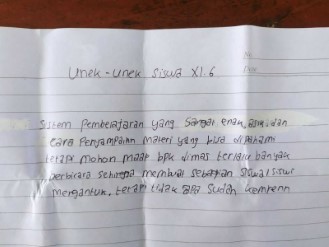 Unek-Unek Siswa XI.6
Sistem Pembelajaran yang Sangat enak, asik, dan
cara Penyampaian Materi yang bisa di Pahami
tetapi Mohon Maap bpk dimas terlalu banyak
berbicara sehingga membuat sebagian siswa/siswi
mengantuk, tetapi tidak apa sudah